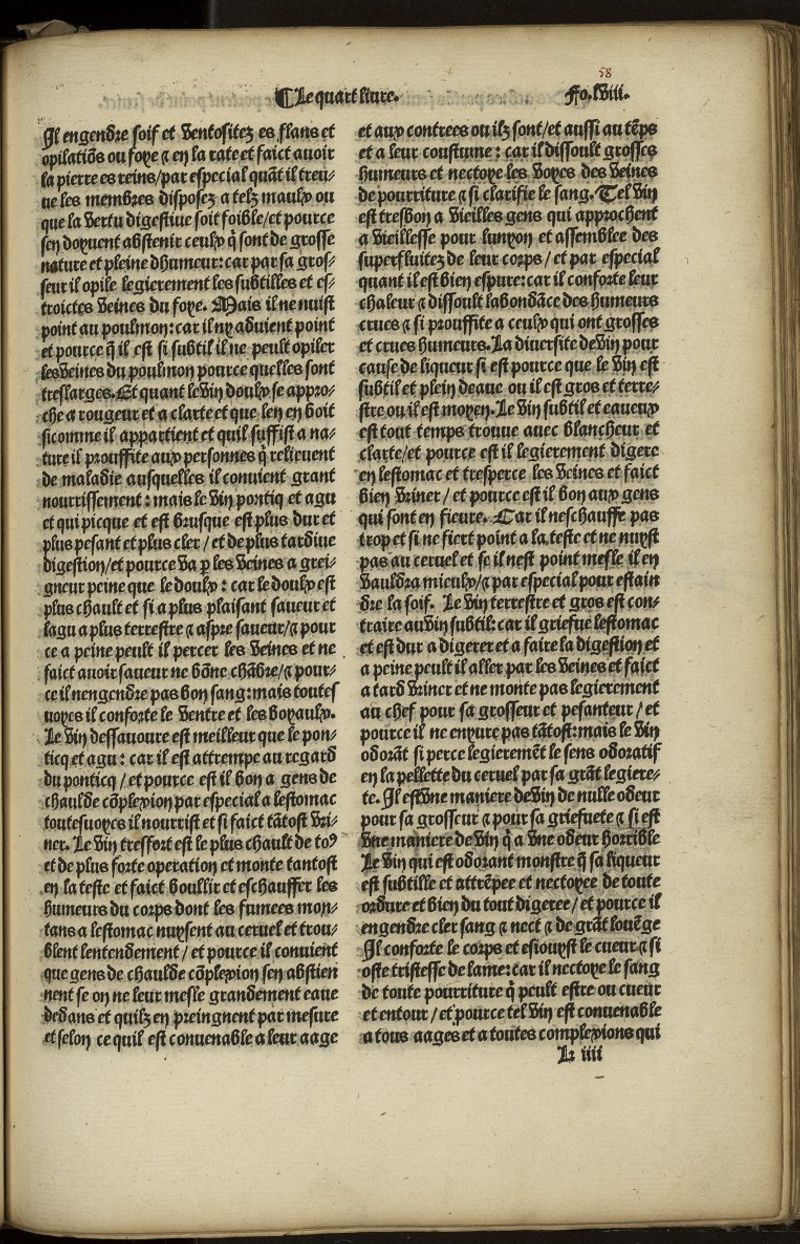 58
¶Le quart liure. ffo.lviii.
Il engendre soif et ventositez es flans et
opilatiõs ou foye ⁊ en la rate et faict auoir
la pierre es reins/par especial quãt il treu⸗
ue les membres disposez a telz maulx ou
que la vertu digestiue soit foible/et pource
sen doyuent abstenir ceulx q̃ sont de grosse
nature et pleine dhumeur: car par sa gros⸗
seur il opile legierement les subtilles et es⸗
troictes veines du foye. Mais il ne nuist
point au poulmon: car il ny aduient point
et pource q̃ il est si subtil il ne peult opiler
les veines du poulmon pource quelles sont
treslarges. Et quant le vin doulx se appro⸗
che a rougeur et a clarte et que len en boit
sicomme il appartient et quil suffist a na⸗
ture il prouffite aux personnes q̃ relieuent
de maladie ausquelles il conuient grant
nourrissement: mais le vin pontiq et agu
et qui picque et est brusque est plus dur et
plus pesant et plus cler / et de plus tardiue
digestion/et pource va p les veines a grei⸗
gneur peine que le doulx: car le doulx est
plus chault et si a plus plaisant saueur et
lagu a plus terrestre ⁊ aspre saueur/⁊ pour
ce a peine peult il percer les veines et ne
faict auoir saueur ne bõne chãbre/⁊ pour⸗
ce il nengendre pas bon sang: mais toutes
uoyes il conforte le ventre et les boyaulx.
Le vin dessauoure est meilleur que le pon⸗
ticq et agu: car il est attrempe au regard
du ponticq / et pource est il bon a gens de
chaulde cõplexion par especial a lestomac
toutesuoyes il nourrist et si faict tãtost vri⸗
ner. Le vin tresfort est le plus chault de to⁹
et de plus forte operation et monte tantost
en la teste et faict boullir et eschauffer les
humeurs du corps dont les fumees mon⸗
tans a lestomac nuysent au ceruel et trou⸗
blent lentendement / et pource il conuient
que gens de chaulde cõplexion sen abstien
nent se on ne leur mesle grandement eaue
dedans et quilz en preingnent par mesure
et selon ce quil est conuenable a leur aage
et aux contrees ou ilz sont/et aussi au tẽps
et a leur coustume: car il dissoult grosses
humeurs et nectoye les voyes des veines
de pourriture ⁊ si clarifie le sang. Tel vin
est tresbon a vieilles gens qui approchent
a vieillesse pour lunyon et assemblee des
superfluitez de leur corps / et par especial
quant il est bien espure: car il conforte leur
chaleur ⁊ dissoult labondãce des humeurs
crues ⁊ si prouffite a ceulx qui ont grosses
et crues humeurs. La diuersite de vin pour
cause de liqueur si est pource que le vin est
subtil et plein deaue ou il est gros et terre⸗
stre ou il est moyen. Le vin subtil et eaueux
est tout temps trouue auec blancheur et
clarte/et pource est il legierement digere
en lestomac et tresperce les veines et faict
bien vriner / et pource est il bon aux gens
qui sont en fieure. Car il neschauffe pas
trop et si ne fiert point a la teste et ne nuyst
pas au ceruel et se il nest point mesle il en
vauldra mieulx/⁊ par especial pour estain
dre la soif. Le vin terrestre et gros est con⸗
traire au vin subtil: car il griefue lestomac
et est dur a digerer et a faire la digestion et
a peine peult il aller par les veines et faict
a tard vriner et ne monte pas legierement
au chef pour sa grosseur et pesanteur / et
pource il ne enyure pas tãtost: mais le vin
odorãt si perce legieremẽt le sens odoratif
en la pellette du ceruel par sa grãt legiere⸗
te. Il est vne maniere de vin de nulle odeur
pour sa grosseur ⁊ pour sa griefuete ⁊ si est
vne maniere de vin q̃ a vne odeur horrible
Le vin qui est odorant monstre q̃ sa liqueur
est subtille et attrẽpee et nectoyee de toute
ordure et bien du tout digeree / et pource il
engendre cler sang ⁊ nect ⁊ de grãt louẽge
Il conforte le corps et esiouyst le cueur ⁊ si
oste tristesse de lame: car il nectoye le sang
de toute pourriture q̃ peult estre ou cueur
et entour / et pource tel vin est conuenable
a tous aages et a toutes complexions qui
L iiii